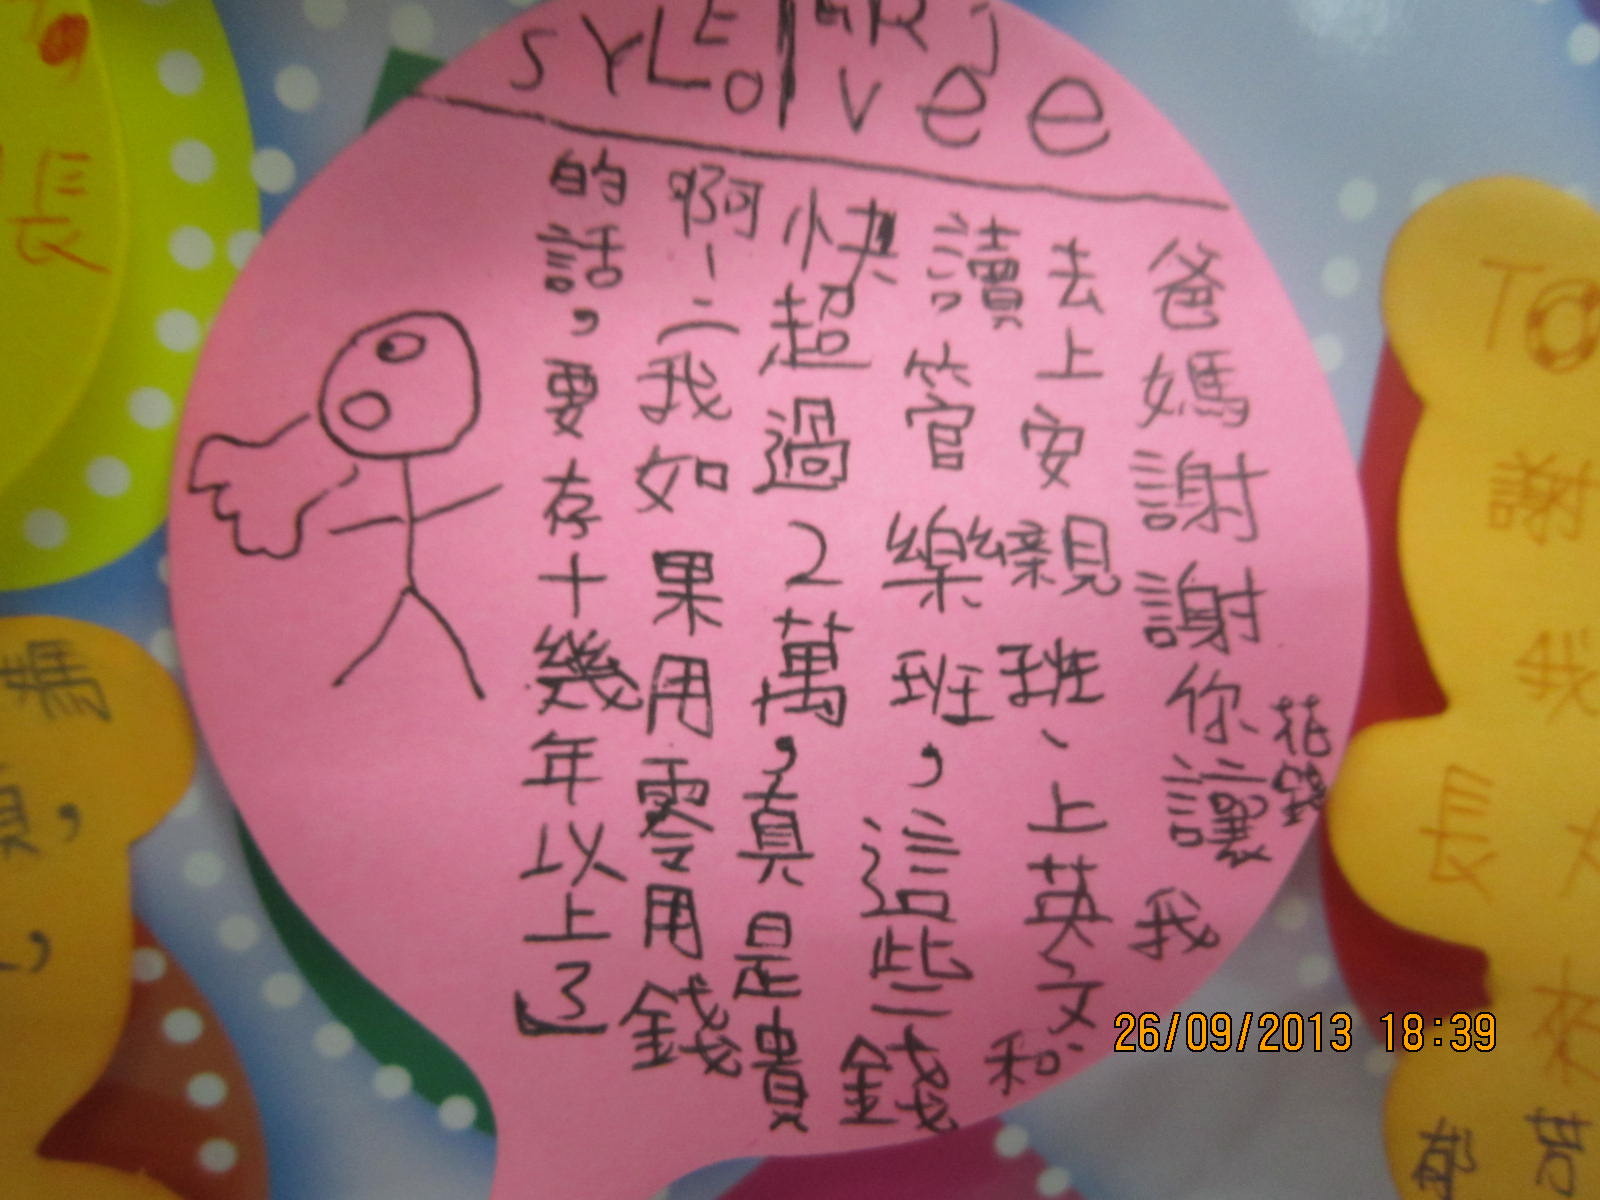 爸媽謝謝你花錢讓我
去上安親班、上英文和
讀管樂班，這些錢
快超過2萬，真是貴
啊 我如果用零用錢
的話，要存十幾年以上了」
長
媽
TO
謝
我
長
26/09/2013 18:39